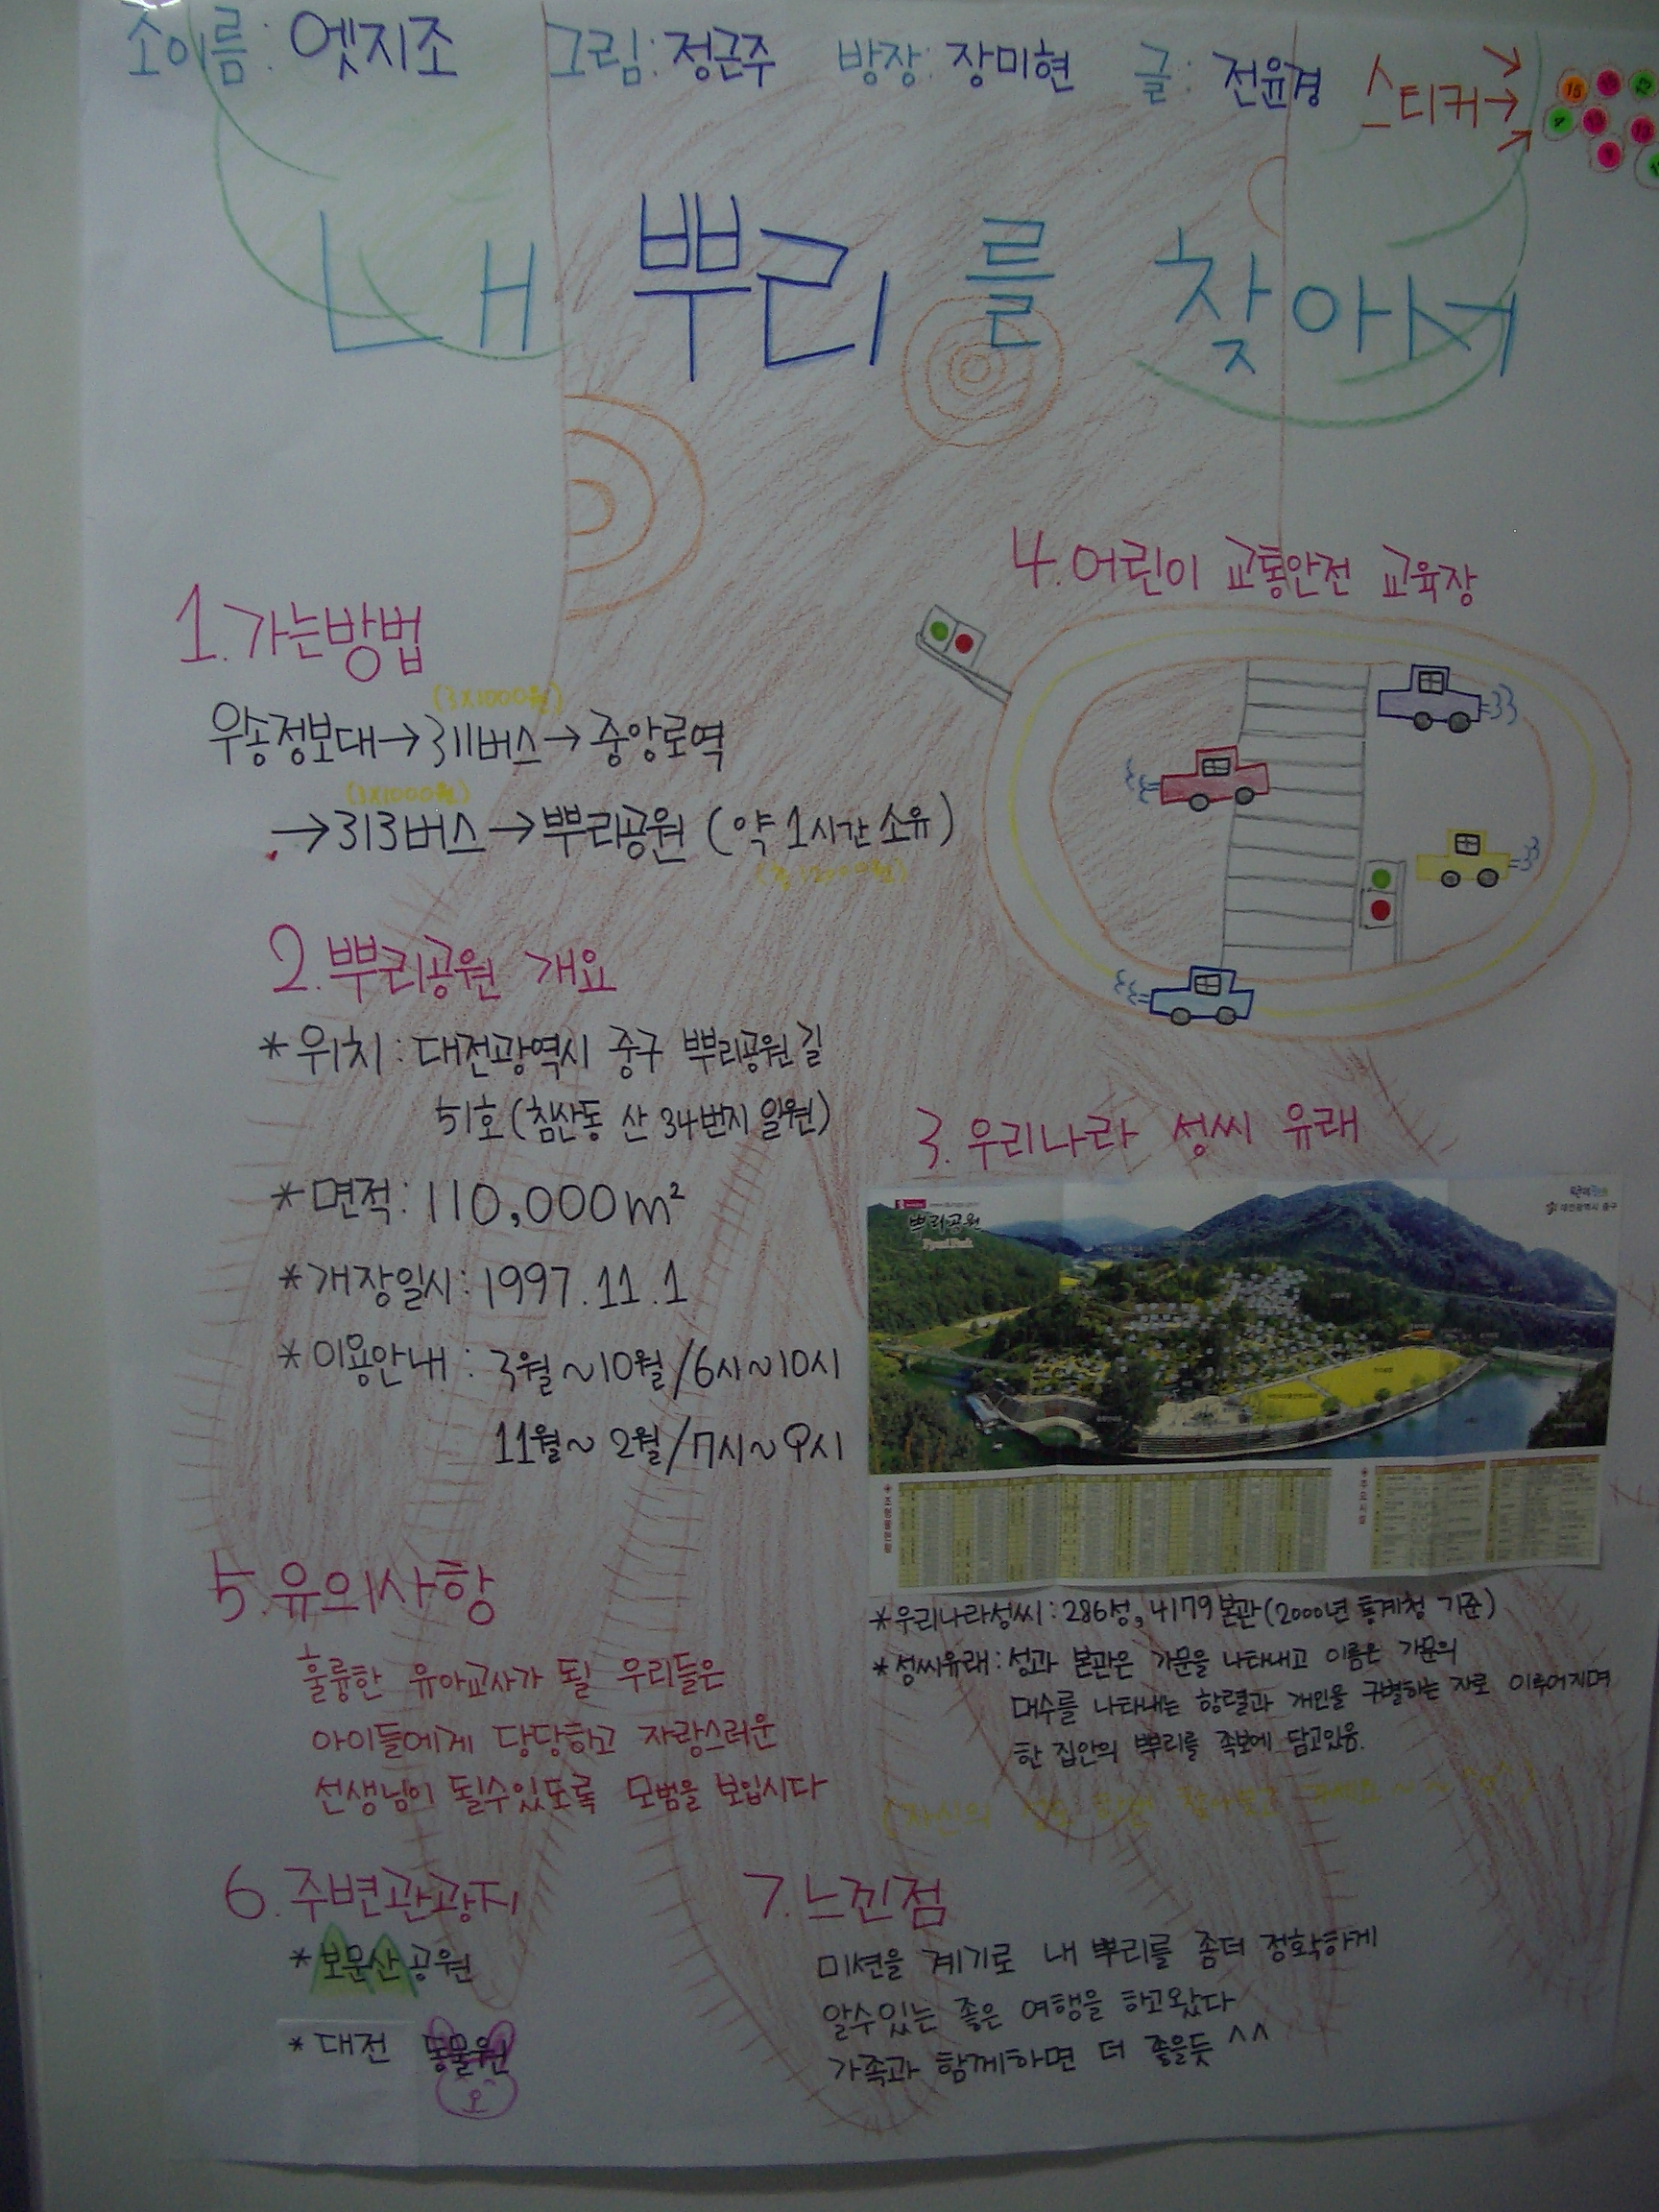 조이름: 엣지조 그림: 정근주 방장: 장미현 글: 전윤경 스티커→
내 뿌리를 찾아서
1. 가는방법
(3X1000원)
우송정보대→311버스→중앙로역
(3X1000원)
→313버스→뿌리공원 (약 1시간 소유)
2. 뿌리공원 개요
*위치: 대전광역시 중구 뿌리공원길
51호(침산동 산 34번지 일원)
*면적: 110,000m²
*개장일시: 1997.11.1
*이용안내: 3월~10월/6시~10시
11월~2월/7시~9시
4. 어린이 교통안전 교육장
3. 우리나라 성씨 유래
뿌리공원
대전광역시 중구
*우리나라성씨: 286성, 4179본관(2000년 통계청 기준)
*성씨유래: 성과 본관은 가문을 나타내고 이름은 가문의
대수를 나타내는 항렬과 개인을 구별하는 자로 이루어지며
한 집안의 뿌리를 족보에 담고있음.
5. 유의사항
훌륭한 유아교사가 될 우리들은
아이들에게 당당하고 자랑스러운
선생님이 될수있도록 모범을 보입시다
6. 주변관광지
*보문산공원
*대전 동물원
7. 느낀점
미션을 계기로 내 뿌리를 좀더 정확하게
알수있는 좋은 여행을 하고왔다
가족과 함께하면 더 좋을듯 ^^